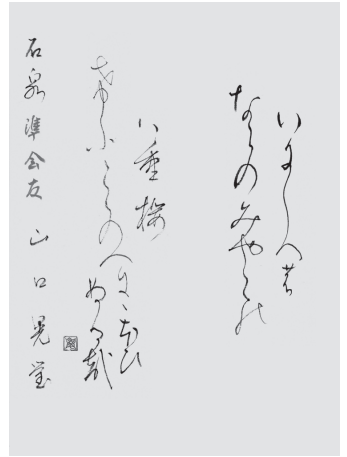 いにしへの
ならのみやこの
八重桜
けふこゝのへににほひ
ぬる哉
石泉 準会友 山口晃